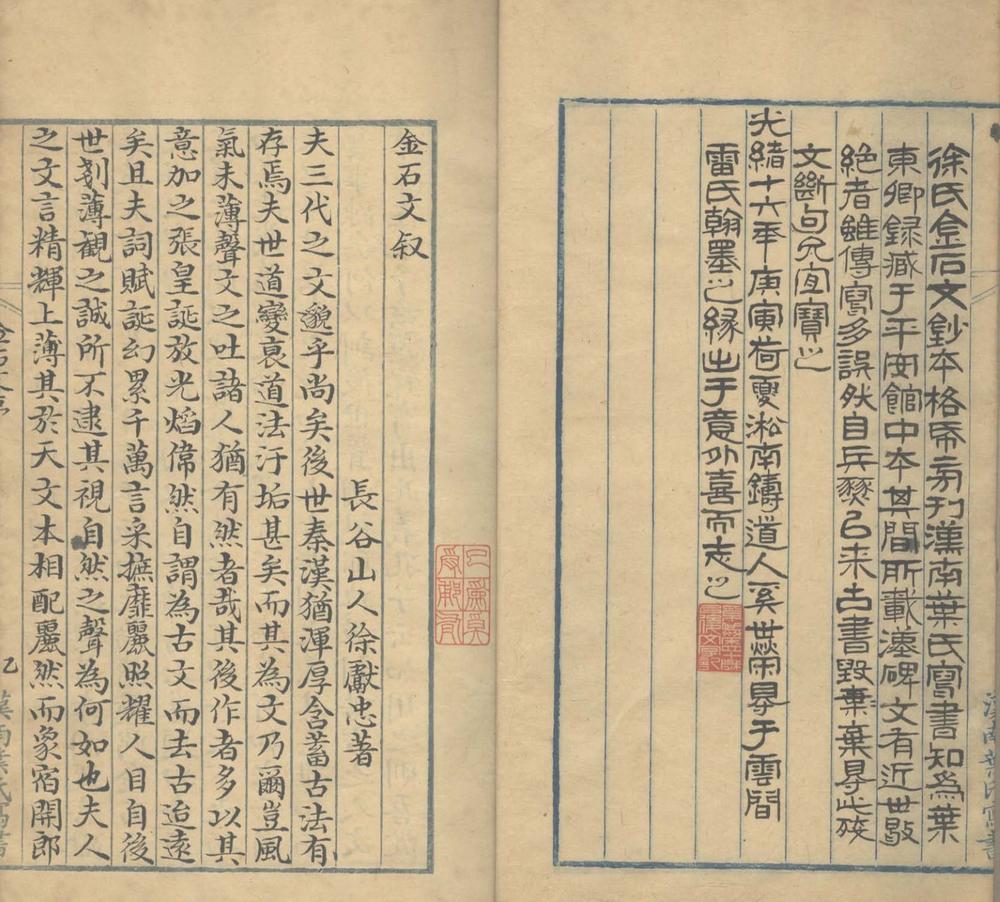 徐氏金石文鈔本格帋旁刊漢南葉氏寫書知爲葉
東卿録藏于平安館中本其間所載漢碑文有近世散
絶者雖傳寫多誤然自兵燹㠯来古書毀棄棄㝵此殘
文斷句允宜寶之
光緒十六年庚寅荷夏淞南鑄道人奚世榮㝵于雲間
雷氏翰墨之緣出于意外喜而志之
漢南葉氏寫書
金石文叙
長谷山人徐獻忠著
夫三代之文邈乎尚矣後世秦漢猶渾厚含蓄古法有
存焉夫世道變衰道法汙垢甚矣而其為文乃爾豈風
氣未薄聲文之吐諸人猶有然者哉其後作者多以其
意加之張皇誕放光熖偉然自謂為古文而去古迨遠
矣且夫詞賦誕幻累千萬言采摭靡麗照耀人目自後
世剗薄観之誠所不逮其視自然之聲為何如也夫人
之文言精輝上薄其於天文本相配麗然而象宿開郎
漢南葉氏寫書